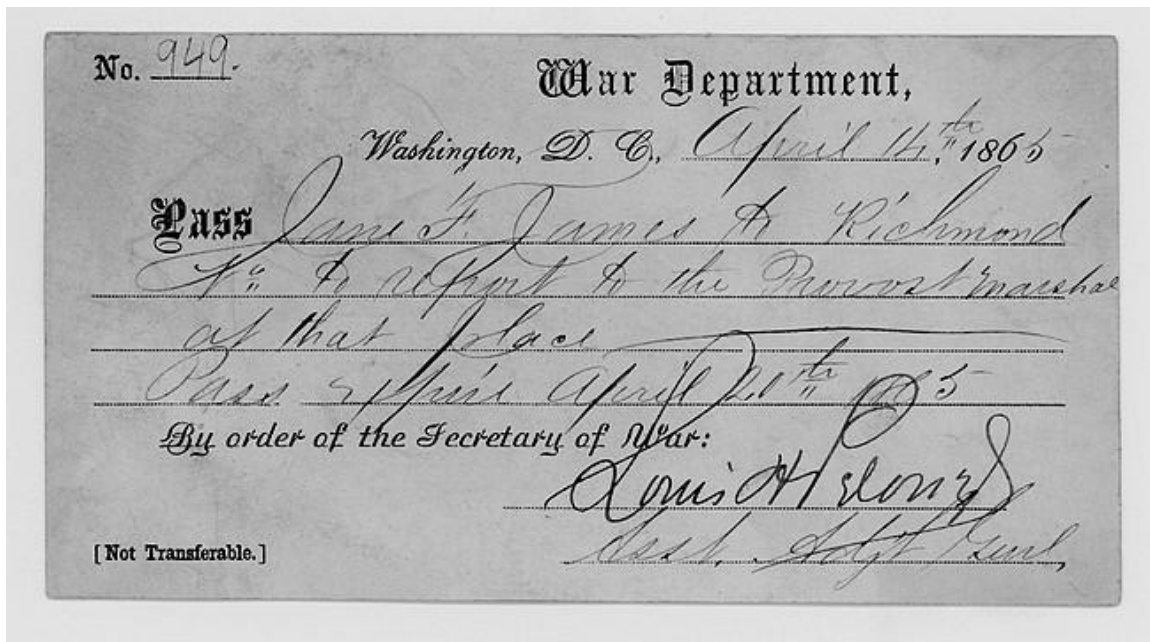 No. 949.
War Department,
Washington, D. C., April 14th 1865
Pass Jane F. James to Richmond
Va to report to the Provost Marshal
at that place
Pass expires April 20th 1865
By order of the Secretary of War:
Louis H Pelouze
Asst. Adjt Genl,
[Not Transferable.]